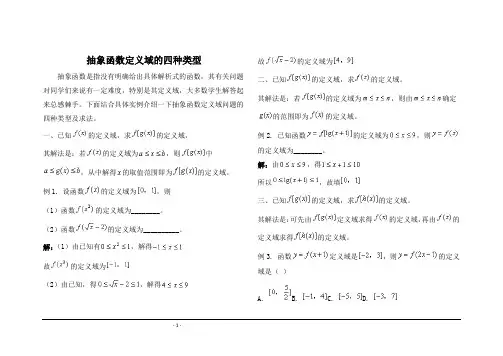 抽象函数定义域的四种类型
抽象函数是指没有明确给出具体解析式的函数，其有关问
题对同学们来说有一定难度，特别是其定义域，大多数学生解答起
来总感棘手，下面结合具体实例介绍一下抽象函数定义域问题的
四种类型及求法。
一、已知f(x)的定义域，求f[g(x)]的定义域。
其解法是：若f(x)的定义域为a≤x≤b，则f[g(x)]中
a≤g(x)≤b，从中解得x的取值范围即为f[g(x)]的定义域。
例1. 设函数f(x)的定义域为[0，1]，则
（1）函数f(x²)的定义域为________。
（2）函数f(√x−2)的定义域为__________。
解：（1）由已知有0≤x²≤1，解得−1≤x≤1
故f(x²)的定义域为[−1，1]
（2）由已知，得0≤√x−2≤1，解得4≤x≤9
- 1 -
故f(√x−2)的定义域为[4，9]
二、已知f[g(x)]的定义域，求f(x)的定义域。
其解法是：若f[g(x)]的定义域为m≤x≤n，则由m≤x≤n确定
g(x)的范围即为f(x)的定义域。
例2. 已知函数y=f[lg(x+1)]的定义域为0≤x≤9，则y=f(x)
的定义域为________。
解：由0≤x≤9，得1≤x+1≤10
所以0≤lg(x+1)≤1，故填[0，1]
三、已知f[g(x)]的定义域，求f[h(x)]的定义域。
其解法是：可先由f[g(x)]定义域求得f(x)的定义域，再由f(x)的
定义域求得f[h(x)]的定义域。
例3. 函数y=f(x+1)定义域是[−2，3]，则y=f(2x−1)的定义
域是（ ）
A. [0，5/2] B. [−1，4] C. [−5，5] D. [−3，7]